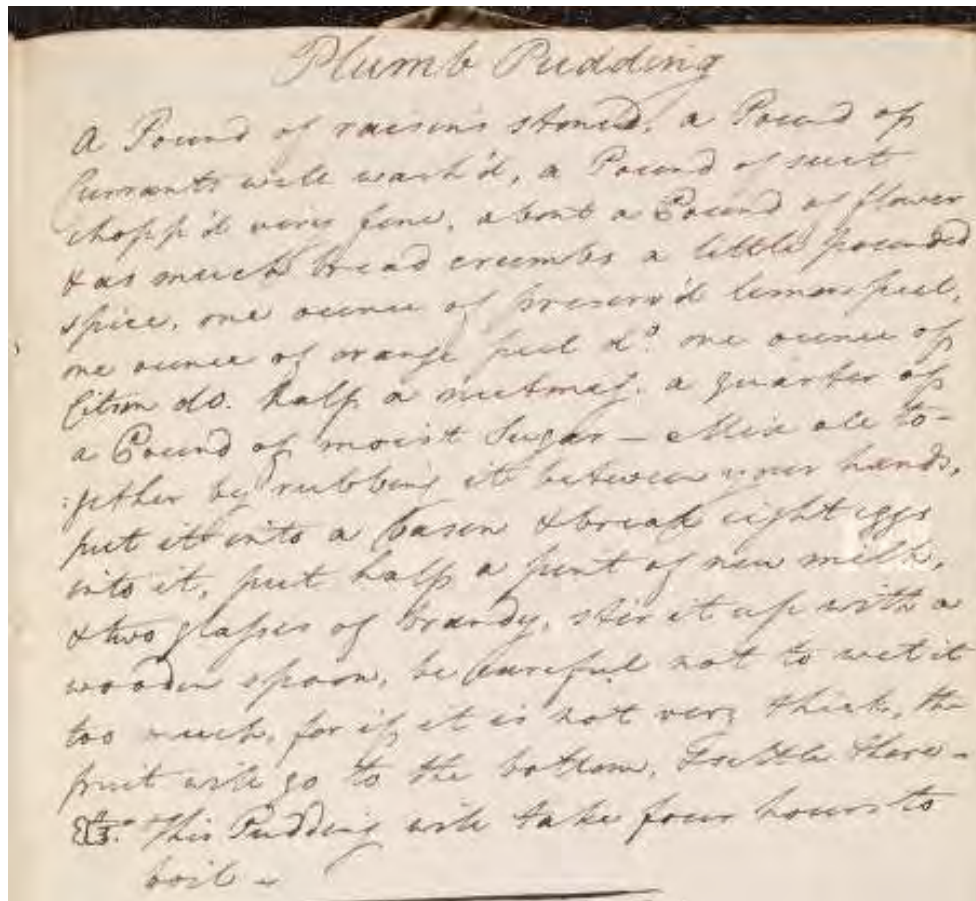 Plumb Pudding
A Pound of raisins stoned, a Pound of
Currants well wash'd, a Pound of suet
chopp'd very fine, about a Pound of flower
& as much bread crumbs a little pounded
spice, one ounce of preserv'd lemon peel,
one ounce of orange peel do. one ounce of
Citron do. half a nutmeg. a quarter of
a Pound of moist Sugar – Mix all to-
:gether by rubbing it between your hands,
put it into a bason & break eight eggs
into it, put half a pint of new milk,
& two glasses of brandy, stir it up with a
wooden spoon, be careful not to wet it
too much, for if it is not very thick, the
fruit will go to the bottom.
This Pudding will take four hours to
boil –